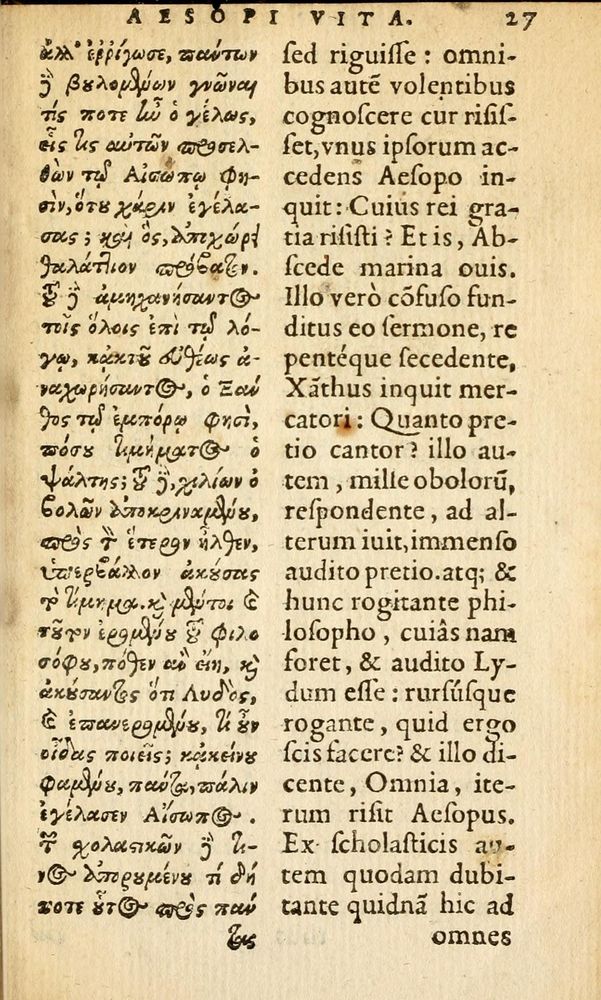 AESOPI VITA. 27
ἀλλ' ἐῤῥίγωσε, πάντων
δὲ βουλομένων γνῶναι
τίς ποτε ἦν ὁ γέλως,
εἷς τις αὐτῶν προσελ-
θὼν τῷ Αἰσώπῳ φη-
σὶν, ὅτου χάριν ἐγέλα-
σας; καὶ ὃς, ἀποχώρει
θαλάττιον πρόβατον.
τοῦ δὲ ἀμηχανήσαντος
τοῖς ὅλοις ἐπὶ τῷ λό-
γῳ, κἀκ τοῦ εὐθέως ἀ-
ναχωρήσαντος, ὁ Ξάν
θος τῷ ἐμπόρῳ φησὶ,
πόσου τιμήματος ὁ
ψάλτης; τοῦ δὲ, χιλίων ὀ
βολῶν ἀποκριναμένου,
πρὸς τὸν ἕτερον ἦλθεν,
ὑπερβάλλον ἀκούσας
τὸ τίμημα. καὶ μέντοι καὶ
τοῦτον ἐρομένου τοῦ φιλο
σόφου, πόθεν ἂν εἴη, καὶ
ἀκούσαντος ὅτι Λυδὸς,
καὶ ἐπανερομένου, τί οὖν
οἶδας ποιεῖς; κἀκείνου
φαμένου, πάντα, πάλιν
ἐγέλασεν Αἴσωπος.
τῶν σχολαστικῶν δὲ τι-
νος ἀπορουμένου τί δή
ποτε οὗτος πρὸς πάν
τας
sed riguiſſe : omni-
bus autē volentibus
cognoſcere cur riſiſ-
ſet, vnus ipſorum ac-
cedens Aeſopo in-
quit: Cuius rei gra-
tia riſiſti? Et is, Ab-
ſcede marina ouis.
Illo verò cōfuſo fun-
ditus eo ſermone, re
pentéque ſecedente,
Xāthus inquit mer-
catori: Quanto pre-
tio cantor? illo au-
tem, mille obolorū,
reſpondente, ad al-
terum iuit, immenſo
audito pretio. atq; &
hunc rogitante phi-
loſopho, cuiâs nam
foret, & audito Ly-
dum eſſe: rurſúſque
rogante, quid ergo
ſcis facere? & illo di-
cente, Omnia, ite-
rum riſit Aeſopus.
Ex ſcholaſticis au-
tem quodam dubi-
tante quidnā hic ad
omnes